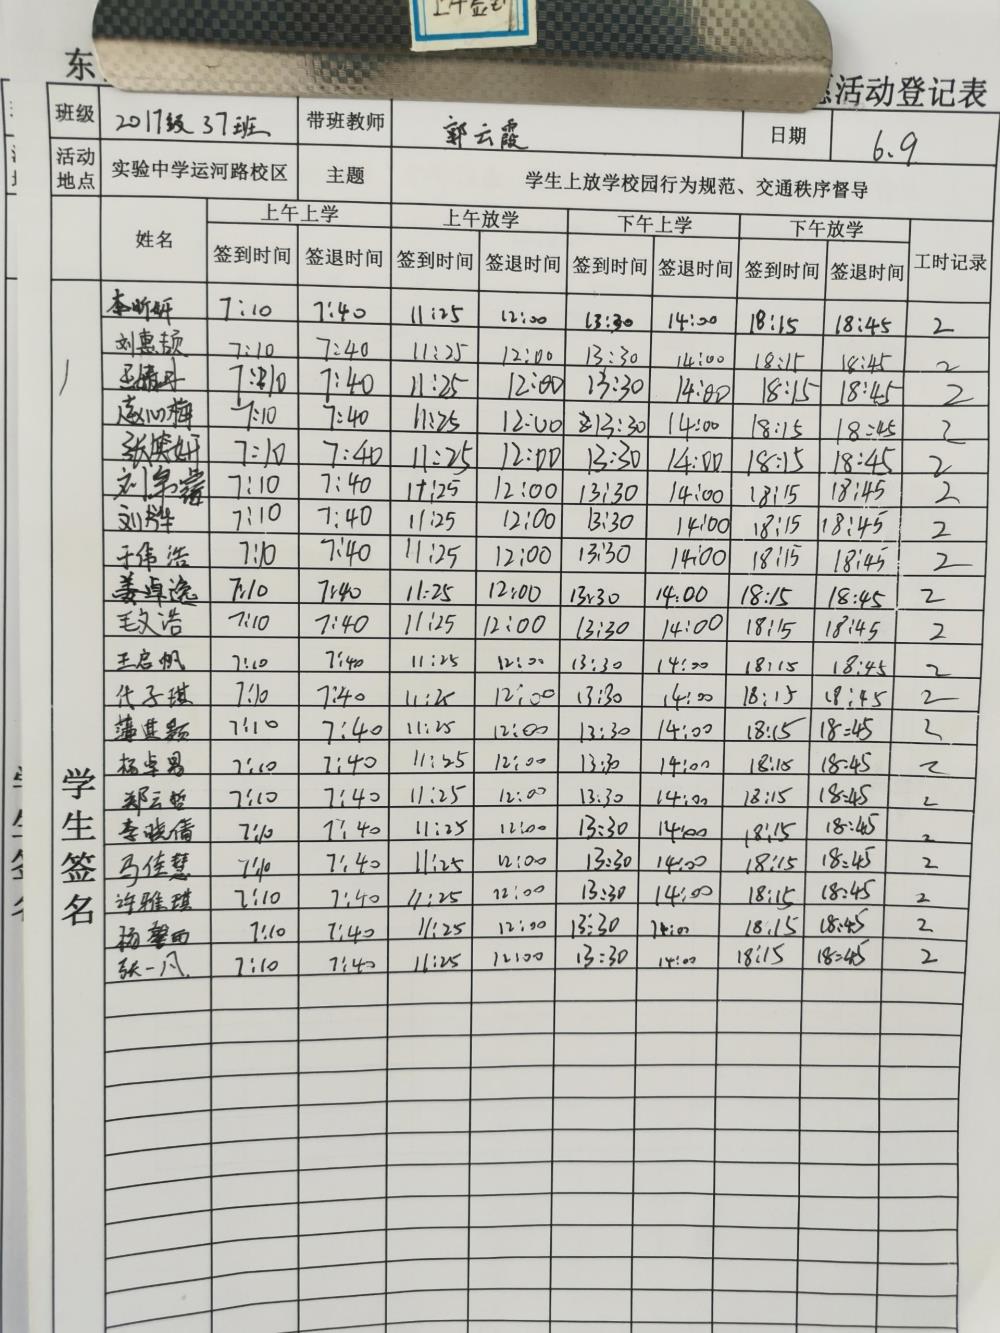 上午签到
东
活动登记表
班级 2017级37班 带班教师 郭云霞 日期 6.9
活动地点 实验中学运河路校区 主题 学生上放学校园行为规范、交通秩序督导
姓名 上午上学 上午放学 下午上学 下午放学 工时记录
签到时间 签退时间 签到时间 签退时间 签到时间 签退时间 签到时间 签退时间
学生签名
李昕妍 7:10 7:40 11:25 12:00 13:30 14:00 18:15 18:45 2
刘惠颉 7:10 7:40 11:25 12:00 13:30 14:00 18:15 18:45 2
7:10 7:40 11:25 12:00 13:30 14:00 18:15 18:45 2
7:10 7:40 11:25 12:00 13:30 14:00 18:15 18:45 2
7:10 7:40 11:25 12:00 13:30 14:00 18:15 18:45 2
7:10 7:40 11:25 12:00 13:30 14:00 18:15 18:45 2
7:10 7:40 11:25 12:00 13:30 14:00 18:15 18:45 2
于伟浩 7:10 7:40 11:25 12:00 13:30 14:00 18:15 18:45 2
姜卓逸 7:10 7:40 11:25 12:00 13:30 14:00 18:15 18:45 2
毛文浩 7:10 7:40 11:25 12:00 13:30 14:00 18:15 18:45 2
王启帆 7:10 7:40 11:25 12:00 13:30 14:00 18:15 18:45 2
代子琪 7:10 7:40 11:25 12:00 13:30 14:00 18:15 18:45 2
7:10 7:40 11:25 12:00 13:30 14:00 18:15 18:45 2
杨卓男 7:10 7:40 11:25 12:00 13:30 14:00 18:15 18:45 2
郑云哲 7:10 7:40 11:25 12:00 13:30 14:00 18:15 18:45 2
李晓倩 7:10 7:40 11:25 12:00 13:30 14:00 18:15 18:45 2
马佳慧 7:10 7:40 11:25 12:00 13:30 14:00 18:15 18:45 2
许雅琪 7:10 7:40 11:25 12:00 13:30 14:00 18:15 18:45 2
杨馨雨 7:10 7:40 11:25 12:00 13:30 14:00 18:15 18:45 2
张一凡 7:10 7:40 11:25 12:00 13:30 14:00 18:15 18:45 2